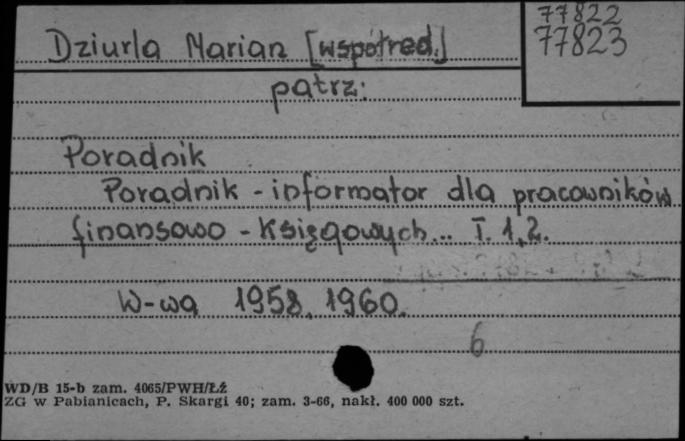 77822
Dziurla Marian [współred.] 77823
patrz:
Poradnik
Poradnik - informator dla pracowników
finansowo - księgowych... T. 1, 2.
W-wa 1958, 1960.
6
WD/B 15-b zam. 4065/PWH/ŁŹ
ZG w Pabianicach, P. Skargi 40; zam. 3-66, nakł. 400 000 szt.